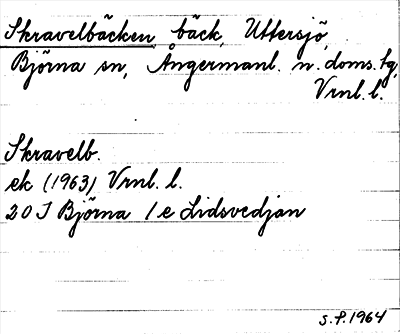 Skravelbäcken, bäck, Uttersjö,
Björna sn, Ångermanl. n. doms. sg,
Vrnl. l.
Skravelb.
ek (1963) Vrnl. l.
20 J Björna 1 e Lidsvedjan
S.P. 1964